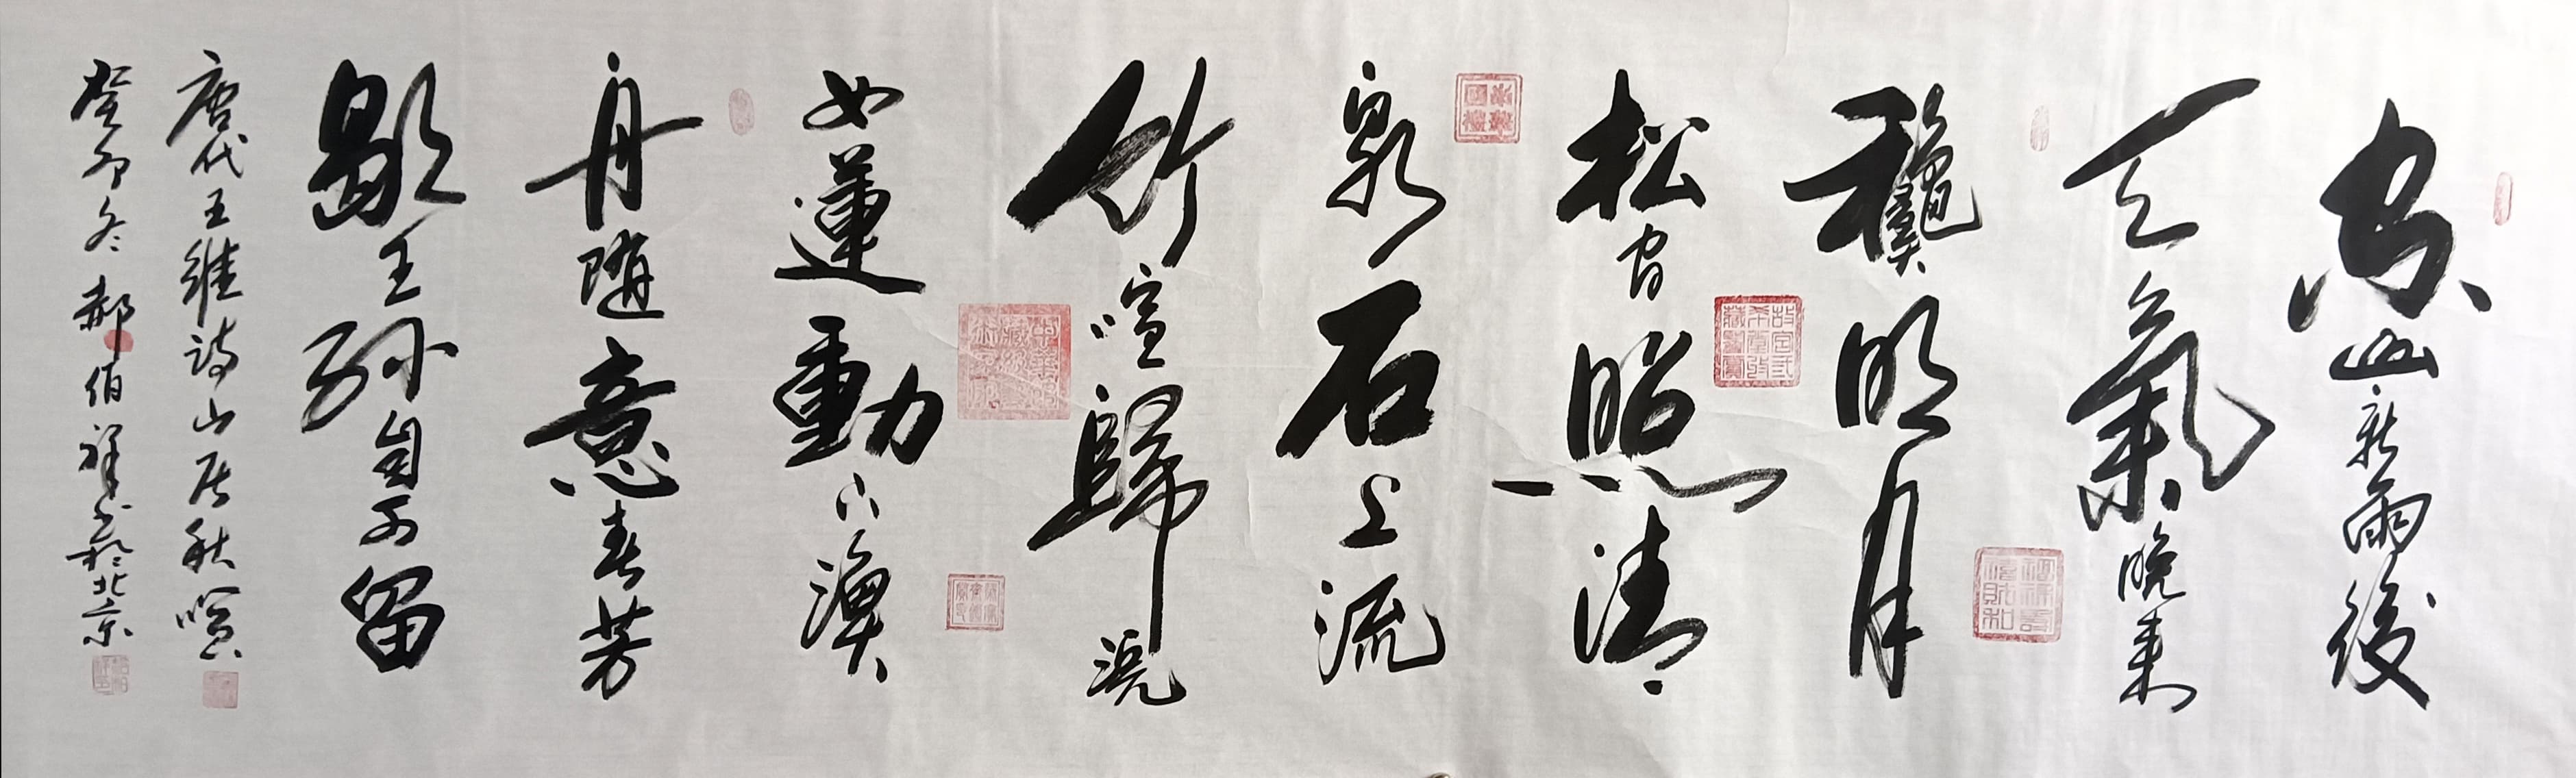 空山新雨後
天氣晚来
龝明月
松間照清
泉石上流
竹喧歸浣
女蓮動下漁
舟隨意春芳
歇王孫自可留
唐代王維詩山居秋暝
癸卯冬郝伯祥书於北京